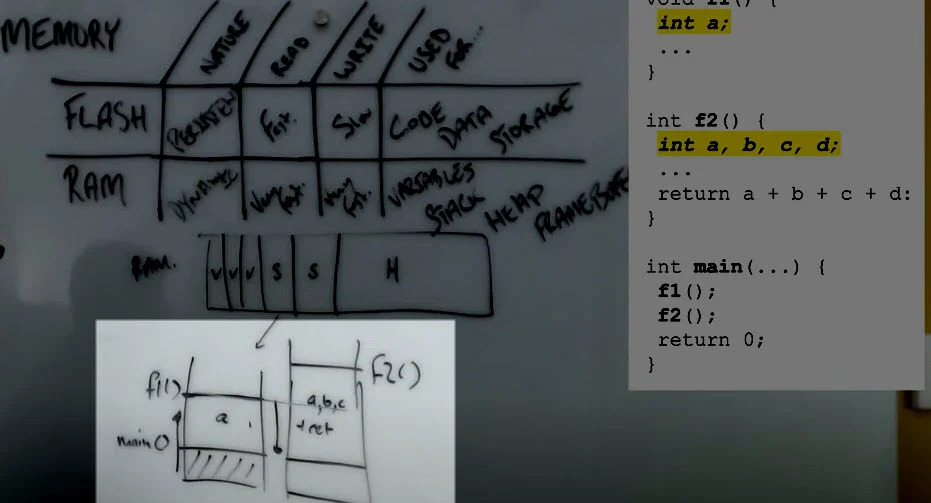 MEMORY
NATURE
READ
WRITE
USED FOR...
FLASH
Fast.
Slow
CODE DATA STORAGE
RAM
DYNAMIC
Very Fast.
Very Fast.
VARIABLES STACK HEAP
RAM.
V V V S S H
f1()
a
main()
f2()
a,b,c
+ret
int a;
...
}
int f2() {
int a, b, c, d;
...
return a + b + c + d:
}
int main(...) {
f1();
f2();
return 0;
}